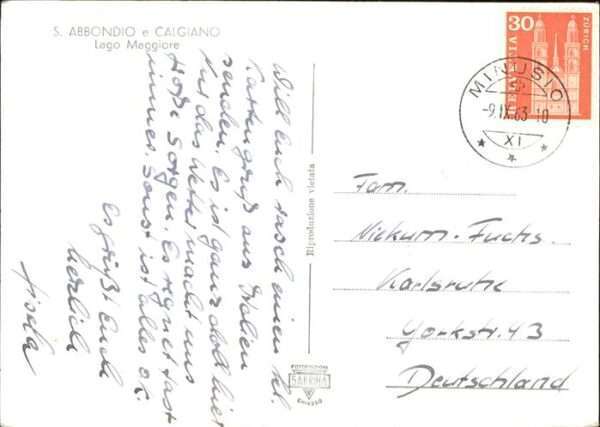 S. ABBONDIO e CALGIANO
Lago Maggiore
Will Euch rasch einen kl.
Kartengruß aus Italien
senden. Es ist ganz doll hier
Nur das Wetter macht uns
Sorgen. Es regnet fast
immer. Sonst ist alles ok.
Es grüßt Euch
herzlich
Riproduzione vietata
SABRINA
30
HELVETIA
ZÜRICH
MINUSIO
-9.IX.63-10
XI
Fam.
Nickum-Fuchs.
Karlsruhe
Yorkstr. 43
Deutschland